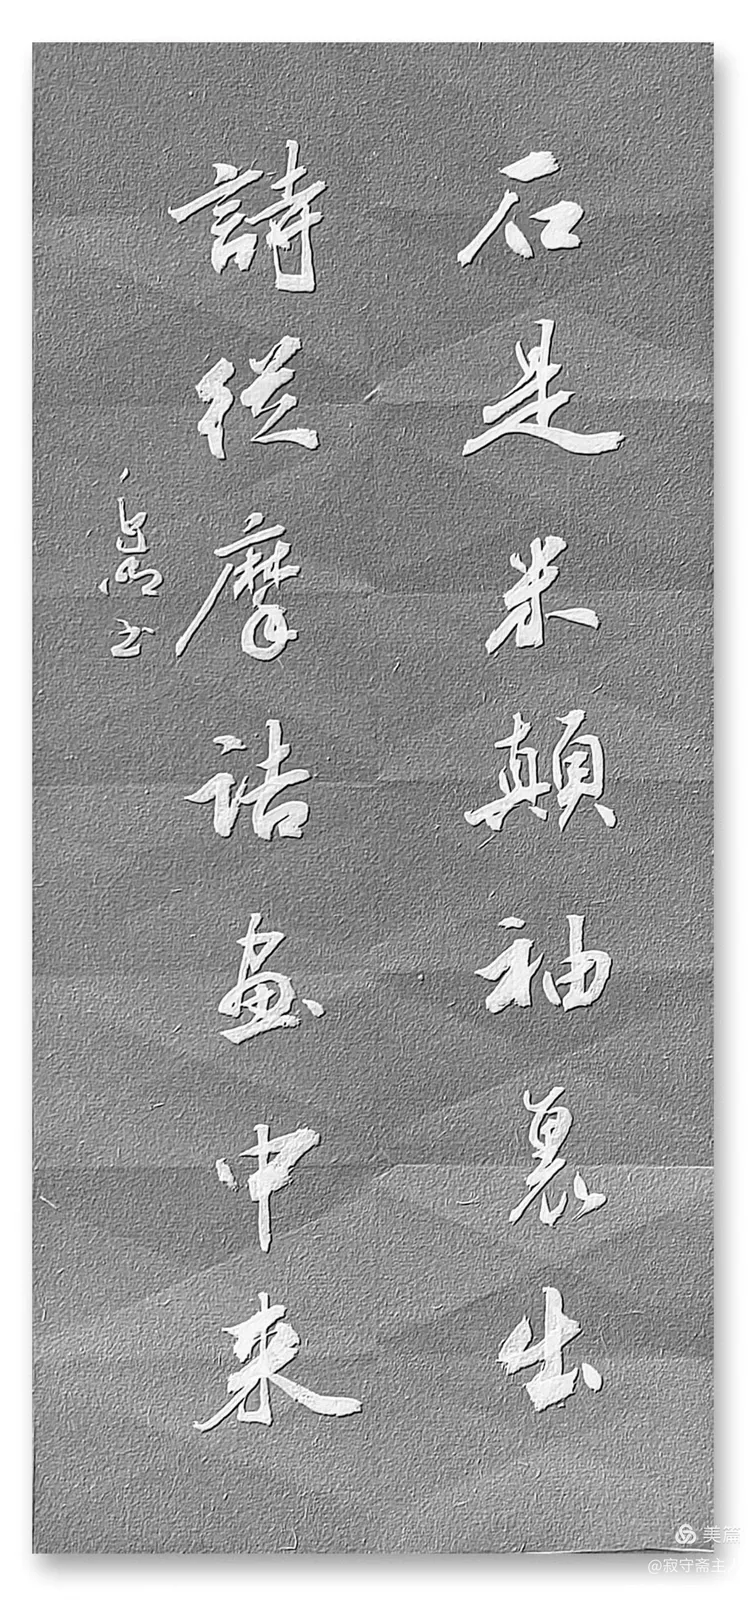 石是米顛袖裏出
詩從摩詰画中来
書
美篇
@寂守斋主